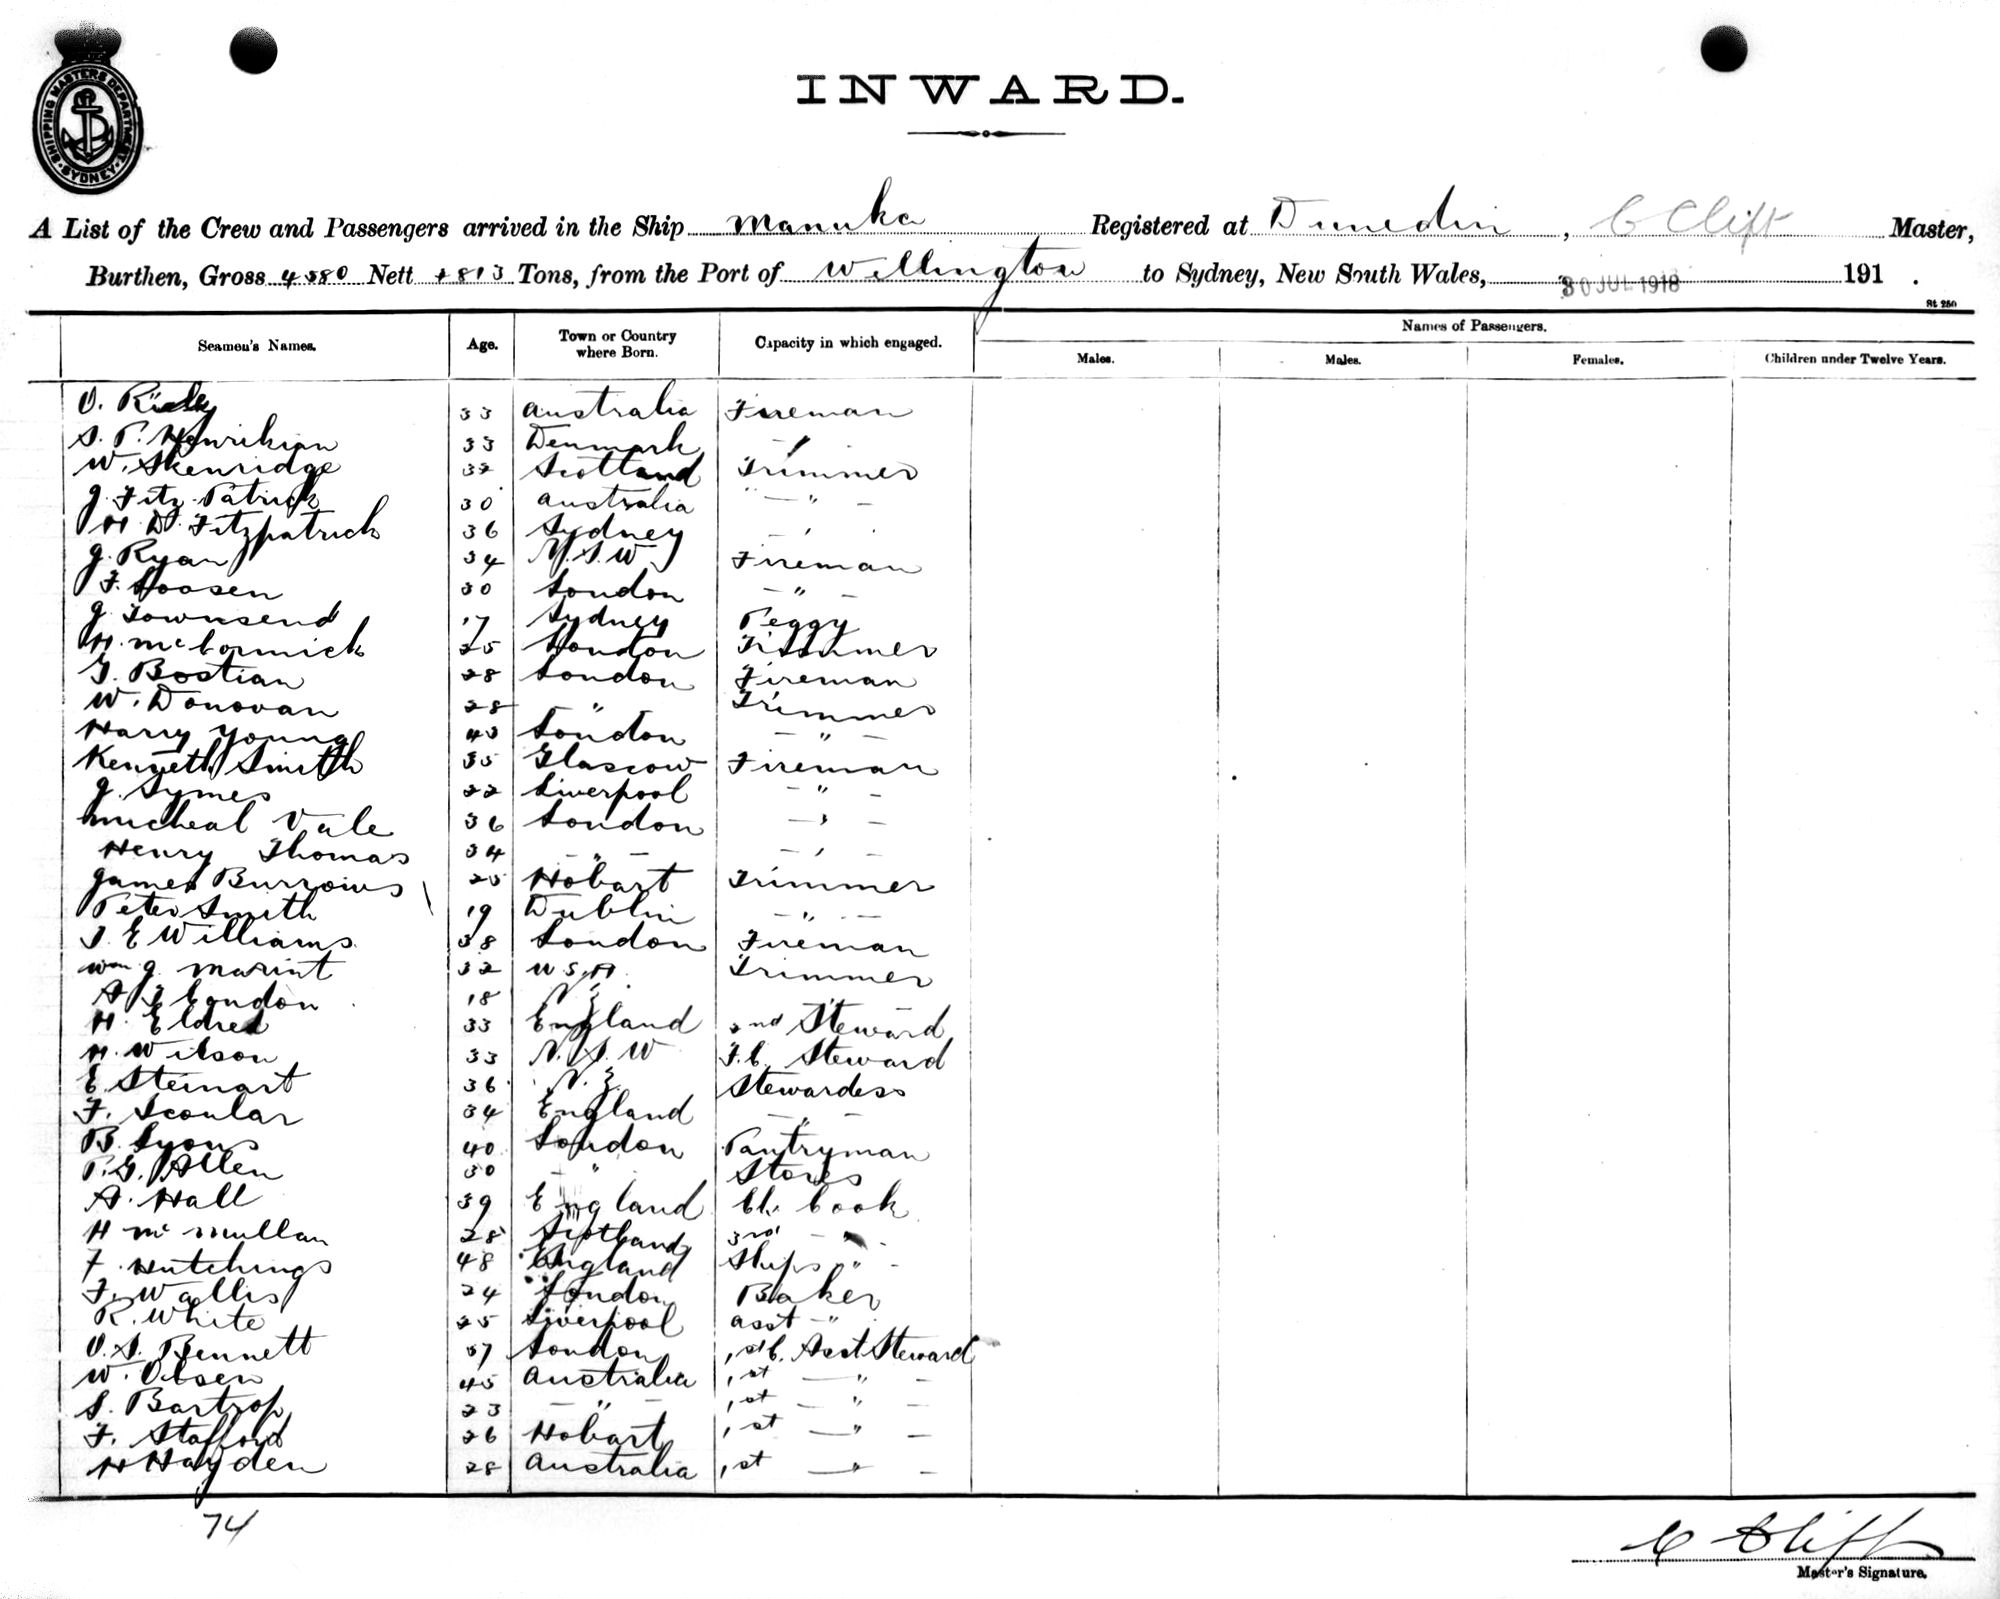 SHIPPING MASTERS DEPARTMENT SYDNEY
INWARD.
A List of the Crew and Passengers arrived in the Ship Manuka Registered at Dunedin, C Clift Master,
Burthen, Gross 4380 Nett Tons, from the Port of Wellington to Sydney, New South Wales, 30 JUL 1918 191 .
St 250
Seamen's Names. Age. Town or Country where Born. Capacity in which engaged. Names of Passengers.
Males. Males. Females. Children under Twelve Years.
O. 33 Australia Fireman
S. P. Henriksen 33 Denmark "
W. Skenridge 32 Scotland Trimmer
J. Fitz Patrick 30 Australia — " —
H. D. Fitzpatrick 36 Sydney — " —
J. Ryan 34 N.S.W. Fireman
F. 30 London — " —
J. Townsend 17 Sydney Peggy
H. McCormick 25 London Trimmer
G. Bostian 28 London Fireman
W. Donovan 28 " Trimmer
Harry Young 43 London — " —
Kenneth Smith 35 Glascow Fireman
J. Symes 22 Liverpool — " —
Micheal Vale 36 London — " —
Henry Thomas 34 — " — — " —
James Burrows 25 Hobart Trimmer
Peter Smith 19 Dublin — " —
J. E Williams 38 London Fireman
Wm J. Marint 32 U.S.A. Trimmer
A 18 N.Z.
H. Eldred 33 England 2nd Steward
H. Wilson 33 N.S.W F.C. Steward
E Steinart 36 N.Z. Stewardess
F. Scoular 34 England — " —
B. Lyons 40 London Pantryman
P. G. Allen 30 — " Stores
A. Hall 39 England Ch. Cook
H McMullan 28 Scotland 3rd — " —
F. Hutchings 48 England Ships " -
F. Wallis 24 London Baker
R. White 25 Liverpool Asst — "
O. S. Bennett 37 London 1st C. Asst Steward
W. Olsen 45 Australia 1st — " —
S. Bartrop 23 — " — 1st — " —
F. Stafford 26 Hobart 1st — " —
H Hayden 28 Australia 1st — " —
74
C Clift
Master's Signature.